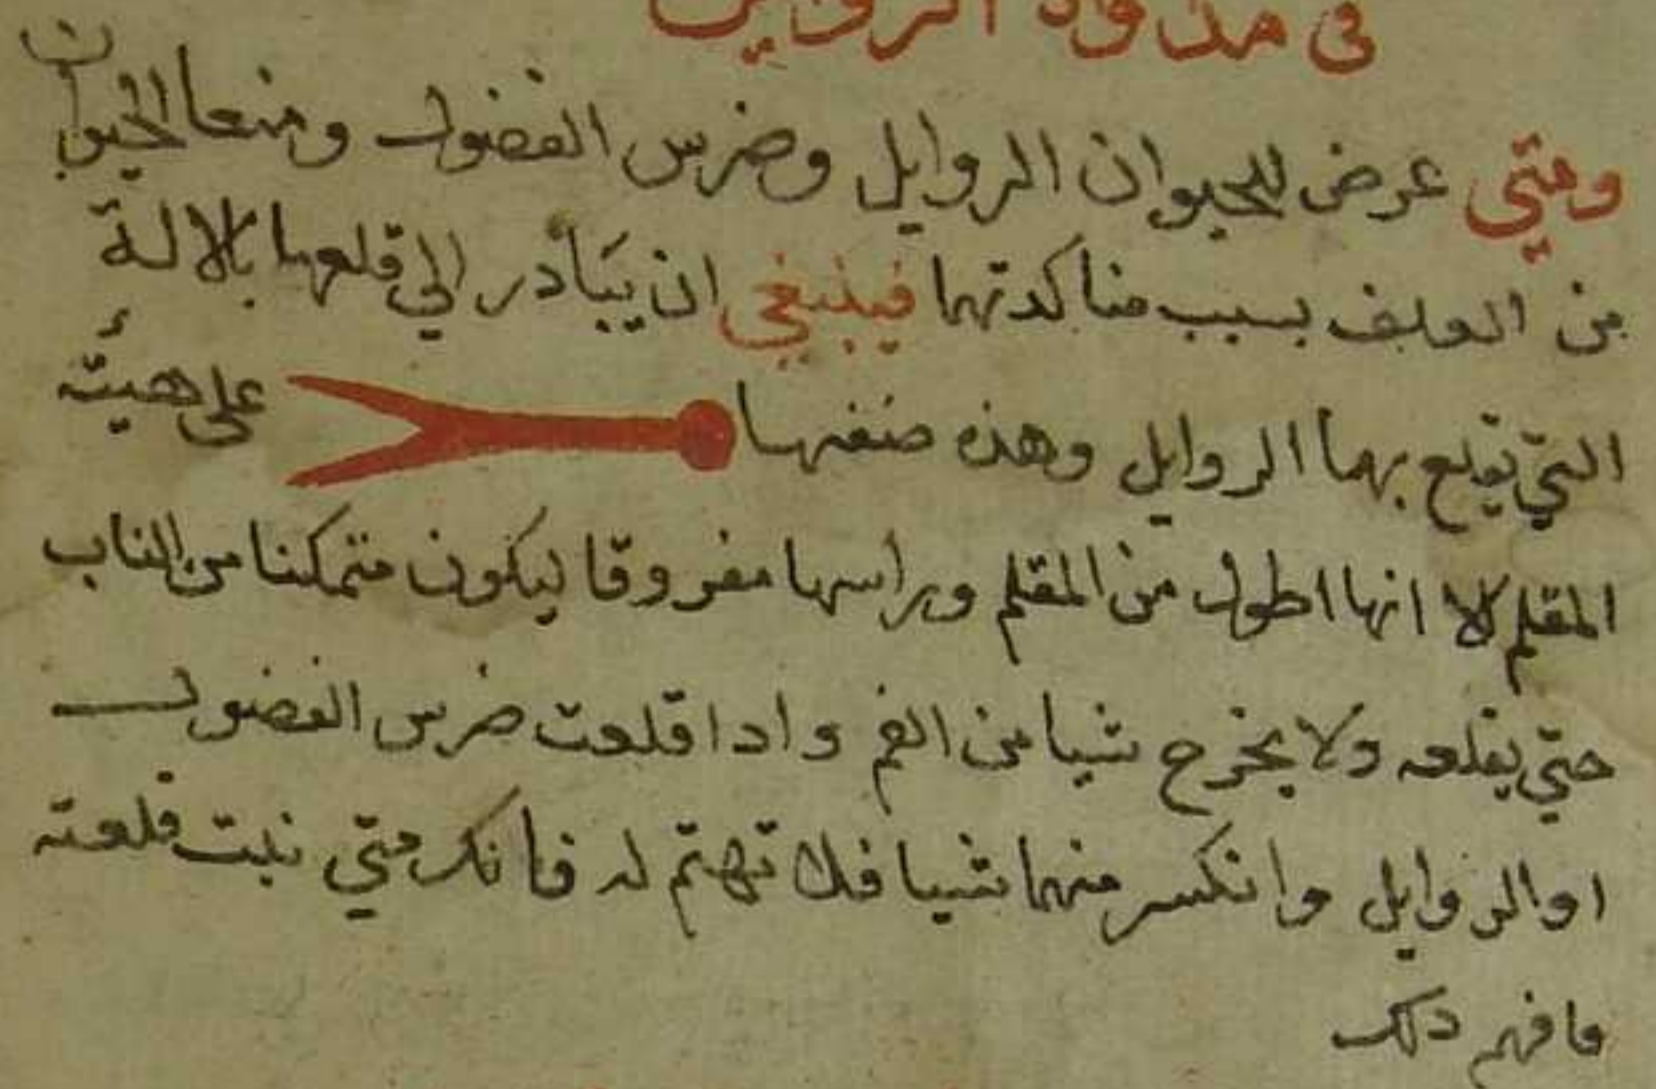 في مداواة الروايل
ومتي عرض للحيوان الروايل وضرس الفضول ومنعا الحيوان
من العلف بسبب مناكدتهما فينبغي ان يبادر الي قلعها بالالة
التي يقلع بهما الروايل وهذه صفتها علي هيئة
المقلم الا انها اطول من المقلم وراسها مفروقا ليكون متمكنا من الناب
حتي يقلعه ولا يخرج شيا من الفم وادا قلعت ضرس الفضول
او الروايل وانكسر منهما شيا فلا تهتم له فانك متي نبت قلعته
فافهم دلك